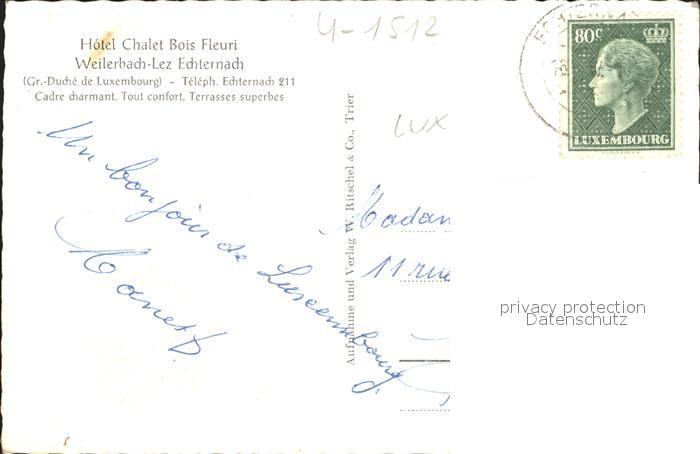 4-1512
Hôtel Chalet Bois Fleuri
Weilerbach-Lez Echternach
(Gr.-Duché de Luxembourg) - Téléph. Echternach 211
Cadre charmant. Tout confort. Terrasses superbes
80c
LUXEMBOURG
LUX
Un bonjour de Luxembourg
Aufnahme und Verlag W. Ritschel & Co., Trier
Madam
11 rue
privacy protection
Datenschutz